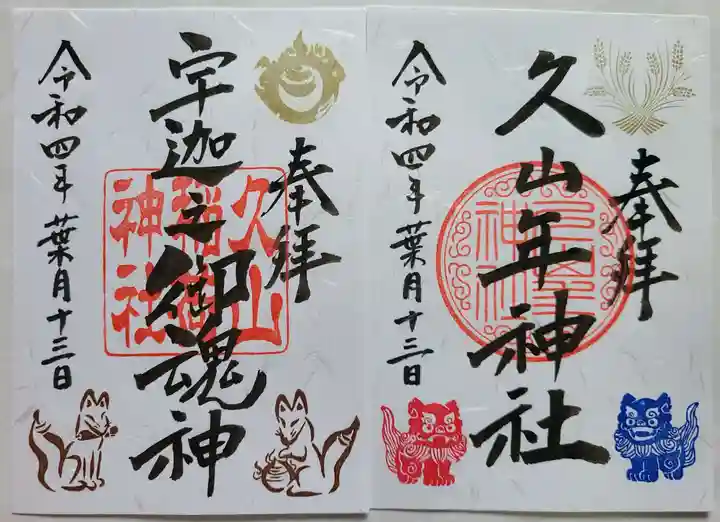 奉拝
久山年神社
久山年
神社
令和四年葉月十三日
奉拝
宇迦之御魂神
久山
稲荷
神社
令和四年葉月十三日